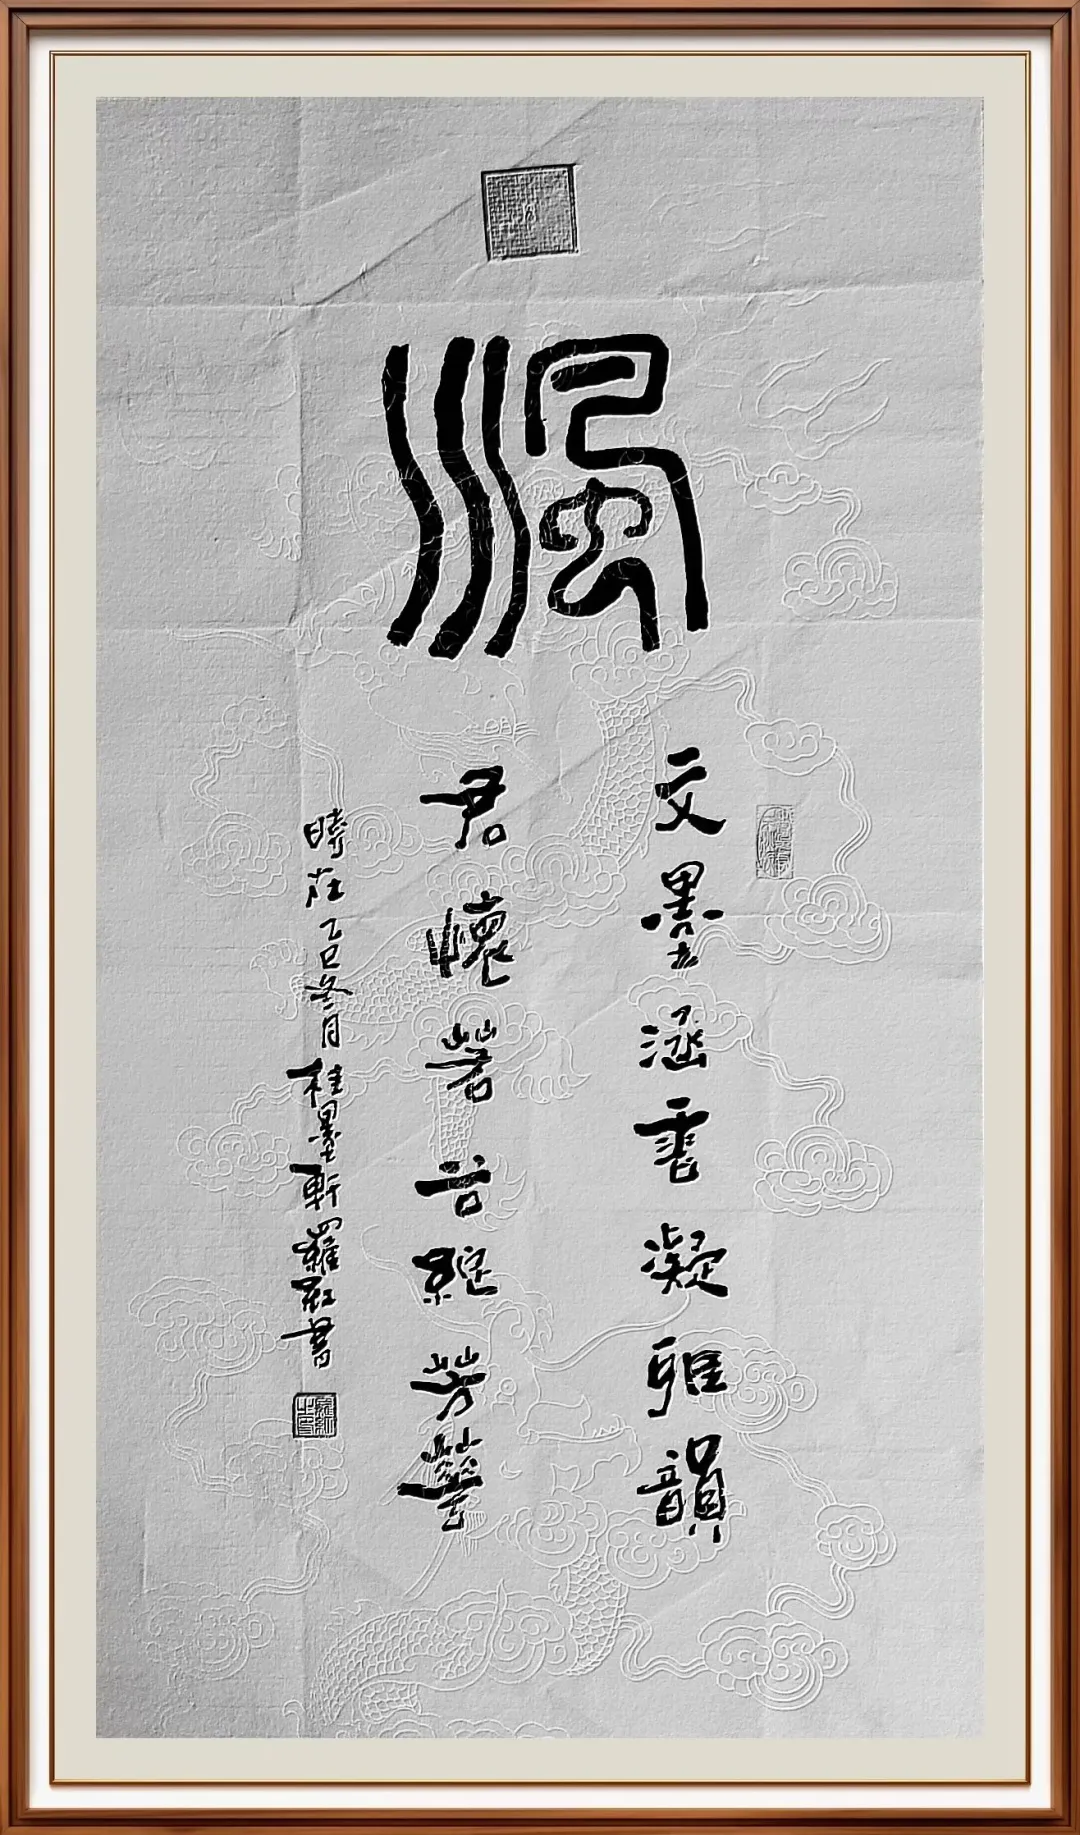 文墨涵雲凝雅韻
君懷若谷綻芳華
時在乙巳冬月桂墨軒羅書